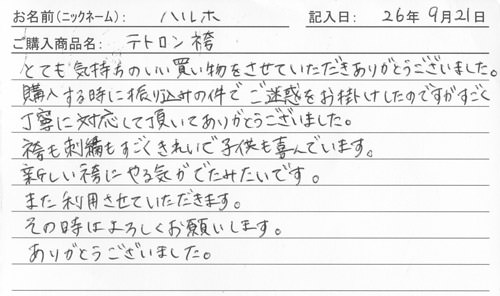 お名前(ニックネーム): ハルホ 記入日: 26年 9月21日
ご購入商品名: テトロン袴
とても気持ちのいい買い物をさせていただきありがとうございました。
購入する時に振り込みの件でご迷惑をお掛けしたのですがすごく
丁寧に対応して頂いてありがとうございました。
袴も刺繍もすごくきれいで子供も喜んでいます。
新しい袴にやる気がでたみたいです。
また利用させていただきます。
その時はよろしくお願いします。
ありがとうございました。